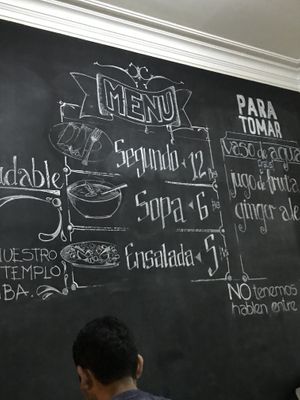 MENU
Segundo 12 Bs
Sopa 6 Bs
Ensalada 5 Bs
PARA
TOMAR
vaso de agua
jugo de fruta
ginger ale
NO tenemos
hablen entre
udable
NUESTRO
TEMPLO
BA.